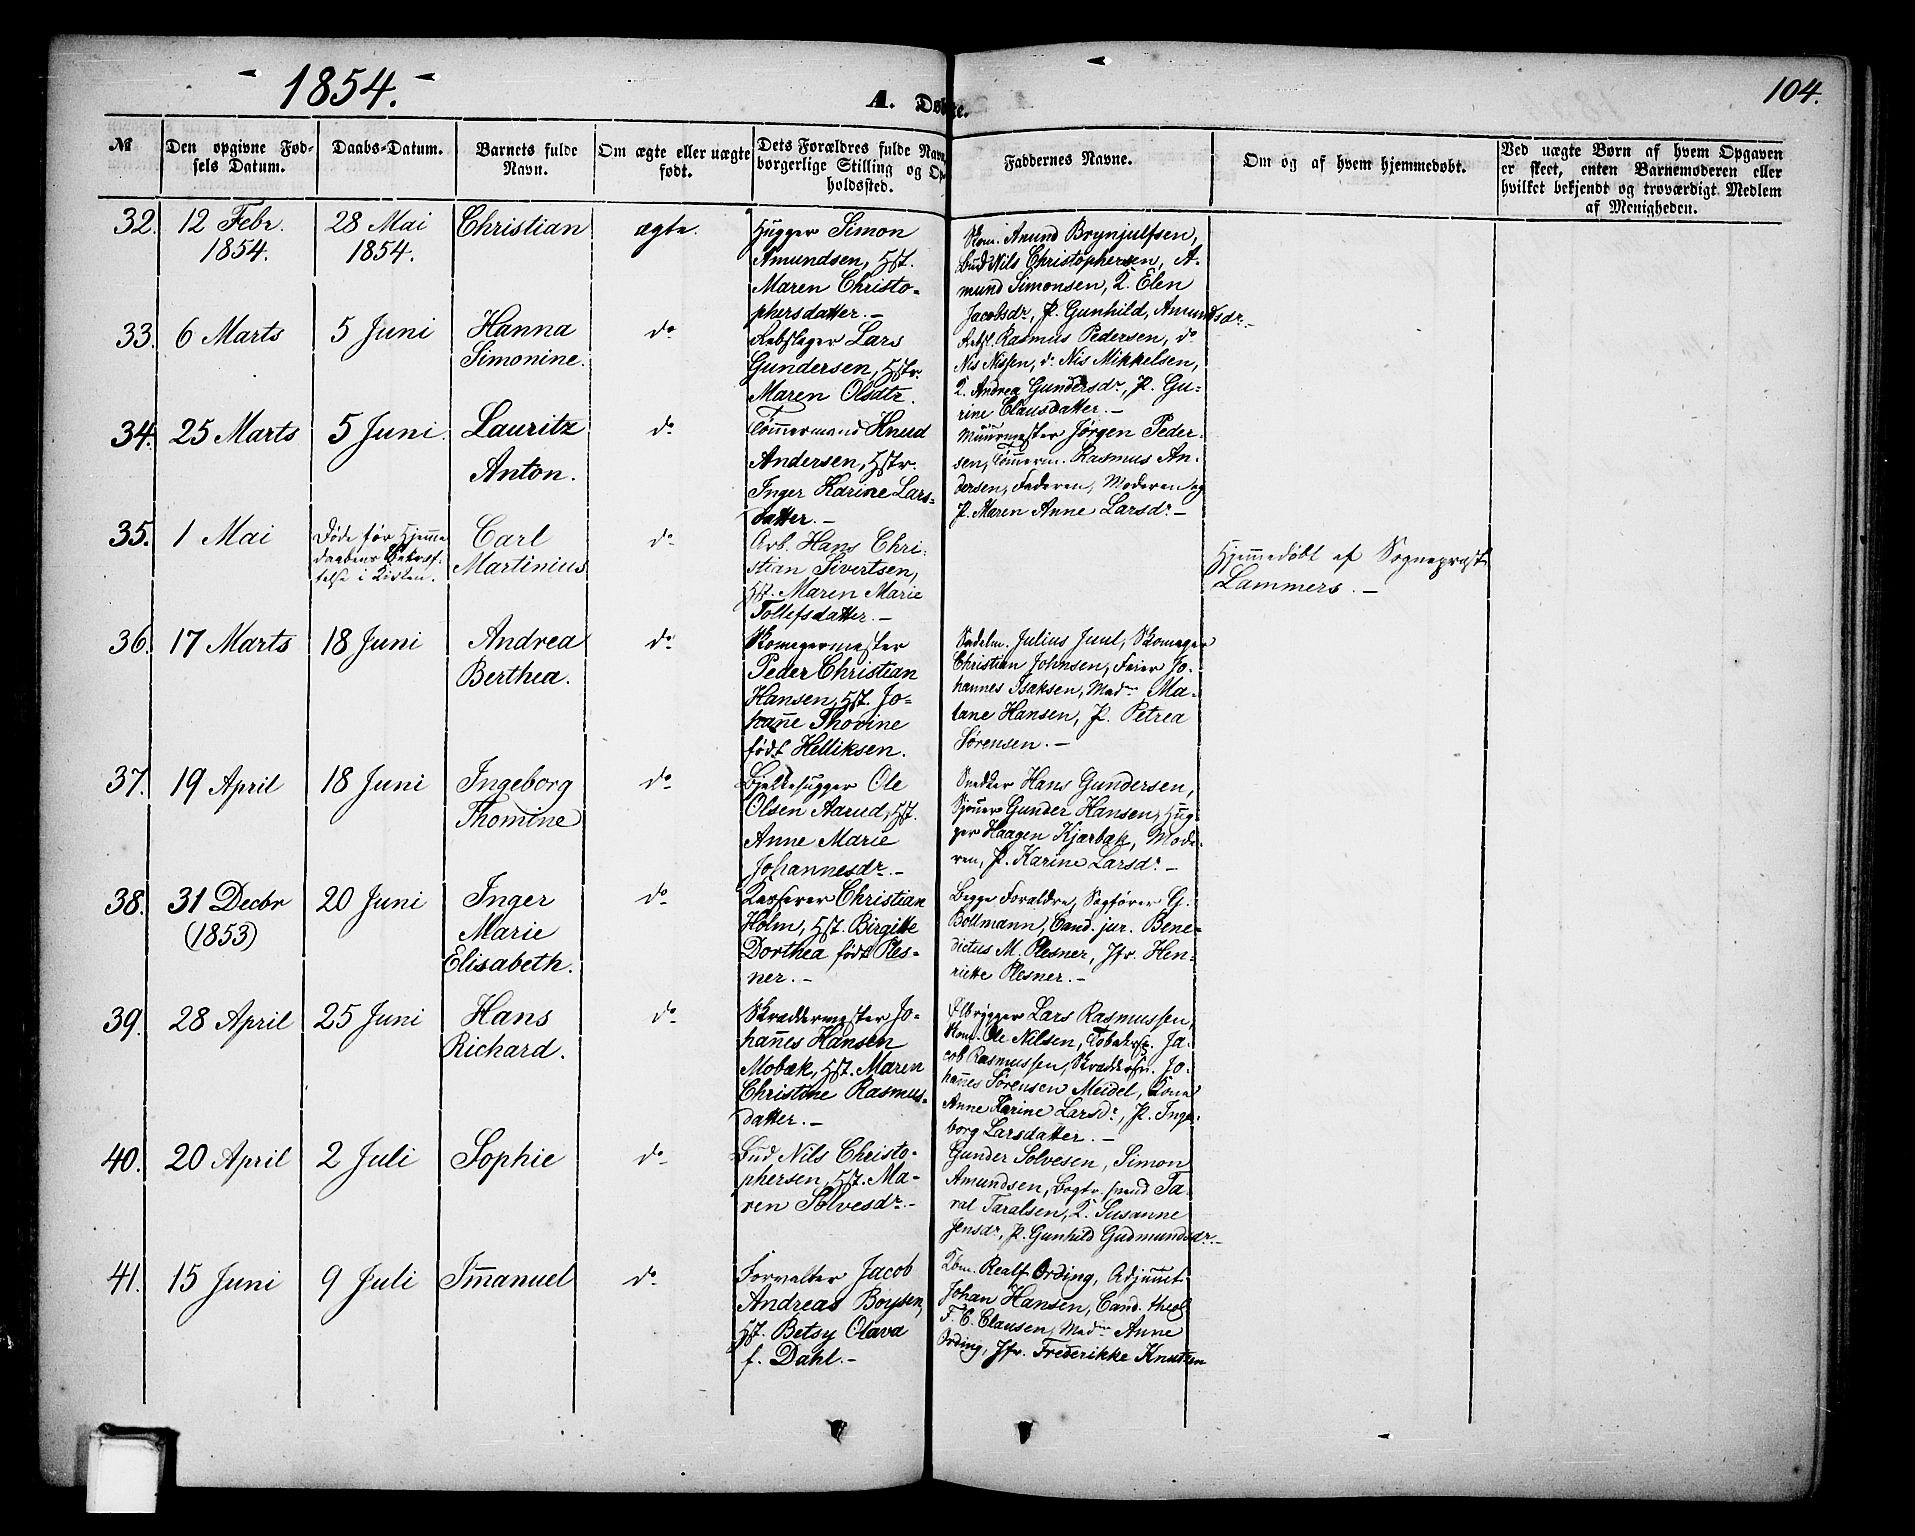 1854.
A. Døbte.
104.
№
Den opgivne Fød-
sels Datum.
Daabs-Datum.
Barnets fulde
Navn.
Om ægte eller uægte
født.
Dets Forældres fulde Navn,
borgerlige Stilling og Op-
holdssted.
Faddernes Navne.
Om og af hvem hjemmedøbt.
Ved uægte Børn af hvem Opgaven
er skeet, enten Barnemoderen eller
hvilket bekjendt og troværdigt Medlem
af Menigheden.
32.
12 Febr.
1854.
28 Mai
1854.
Christian
ægte.
Hugger Simon
Amundsen, Hst.
Maren Christo-
phersdatter.-
Skom. Amund Brynjulfsen,
Bud Nils Christophersen, A-
mund Simonsen, K. Elen
Jacobsdr, P. Gunhild, Amundsdr.-
33.
6 Marts
5 Juni
Hanna
Simonine.
do
Rebslager Lars
Gundersen, Hstr.
Maren Olsdtr.
Rebsl. Rasmus Pedersen, do
Nis Nissen, do Nis Mikkelsen,
K. Andrea Gundersdr., P. Gu-
rine Clausdatter.-
34.
25 Marts
5 Juni.
Lauritz
Anton.
do
Tömmermand Knud
Andersen, Hstr.
Inger Karine Lars-
datter.-
Muurmester Jörgen Peder-
sen, Tömerm. Rasmus An-
dersen, Faderen, Moderen og
P. Maren Anne Larsdr-
35.
1 Mai
Døde før Hjemme
daabens Bekræf-
telse i Kirken.
Carl
Martinius
do
Arb. Hans Chri-
stian Sivertsen,
Hst. Maren Marie
Tollefsdatter.-
Hjemmedøbt af Sognepræst
Lammers.-
36.
17 Marts
18 Juni
Andrea
Berthea.
do
Skomagermester
Peder Christian
Hansen, Hst. Jo-
hanne Thorine
født Helliksen.
Sadelm. Julius Juul, Skomager
Christian Johnsen, Feier Jo-
hannes Isaksen, Madm Ma-
lane Hansen, P. Petrea
Sørensen.-
37.
19 April
18 Juni
Ingeborg
Thomine
do
Bjelkehugger Ole
Olsen Aarud, Hst.
Anne Marie
Johannesdr.-
Snedker Hans Gundersen,
Sjouer Gunder Hansen, Hug-
ger Haagen Kjærbak, Mode-
ren, P. Karine Larsdr-
38.
31 Decbr
(1853)
20 Juni
Inger
Marie
Elisabeth.
do
Kasserer Christian
Holm, Hst. Birgitte
Dorthea født Ples-
ner.-
Begge Forældre, Sagfører G.
Boltmann, Cand. jur. Bene-
dictus M. Plesner, Jfr. Hen-
riette Plesner.-
39.
28 April
25 Juni
Hans
Richard.
do
Skræddermester Jo-
hannes Hansen
Mobæk, Hst. Maren
Christine Rasmus-
datter.-
Ølbrygger Lars Rasmussen,
Skom. Ole Nilsen, Tobaksf. Ja-
cob Rasmussen, Skræddersv. Jo-
hannes Sørensen Meidel, Kone
Anne Karine Larsdr., P. Inge-
borg Larsdatter.-
40.
20 April
2 Juli
Sophie
do
Bud Nils Christo-
phersen, Hst. Ma-
ren Solvesdr.-
Gunder Solvesen, Simon
Amundsen, Bogtr. svend Ta-
ral Taralsen, K. Susanne
Jensdr, P. Gunhild Gudmundsdr.-
41.
15 Juni
9 Juli
Immanuel
do
Forvalter Jacob
Andreas Boysen,
Hst. Betsy Olava
f. Dahl.-
Kbm. Realf Ording, Adjunct
Johan Hansen, Cand. theol
F. C. Clausen, Madm Anne
Ording, Jfr. Frederikke Knutsen